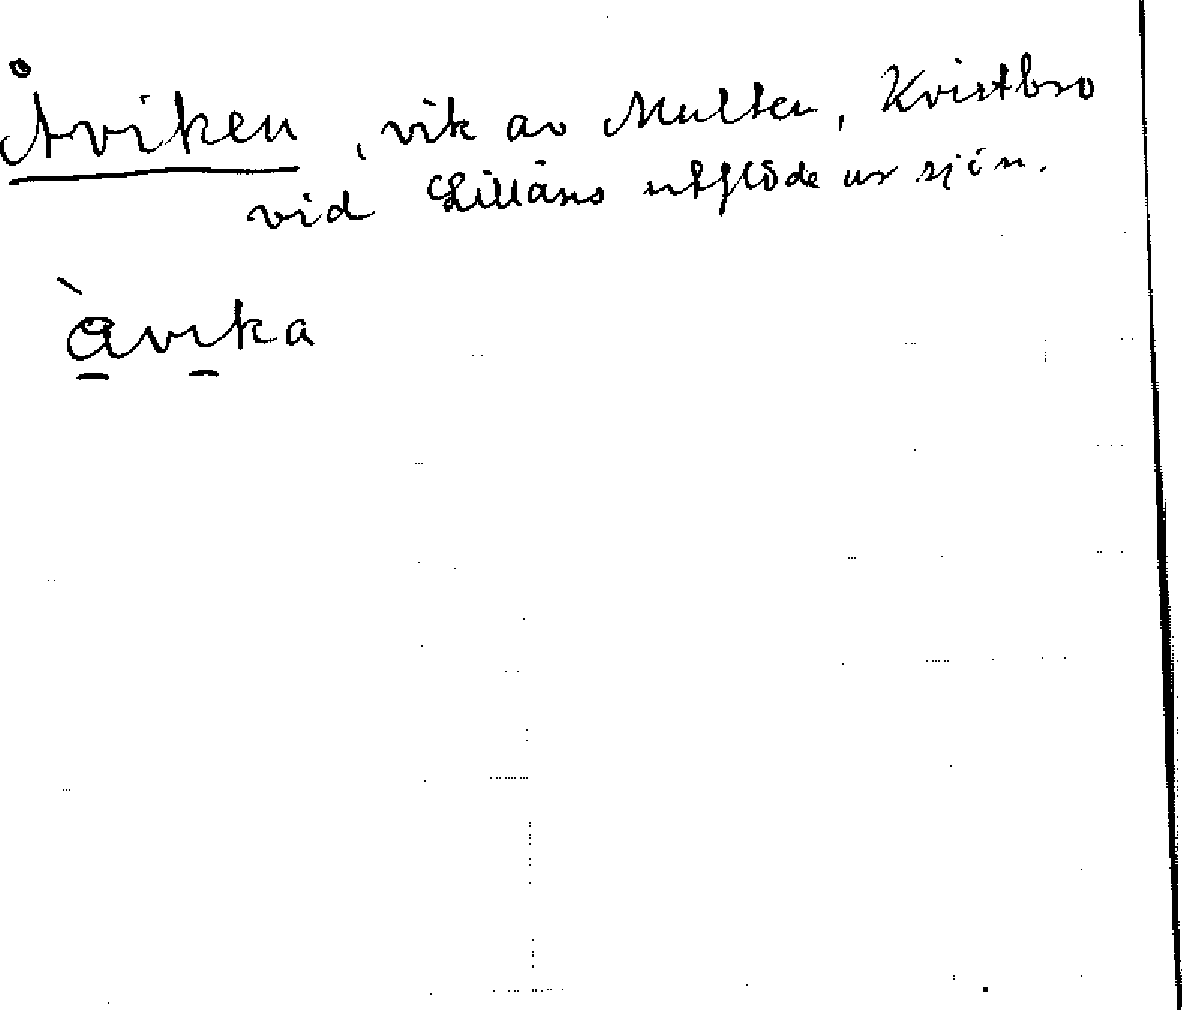 Åviken, vik av Multen, Kvistbro
vid Lillåns utflöde ur sjön.
åvika